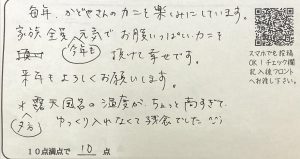 毎年、かどやさんのカニを楽しみにしています。
家族全員元気でお腹いっぱいカニを
今年も
頂けて幸せです。
来年もよろしくお願いします。
*露天風呂の温度が、ちょっと高すぎて、
夕方
ゆっくり入れなくて残念でした
10点満点で 10 点
スマホでも投稿
OK!チェック欄
記入後フロント
へお渡し下さい。